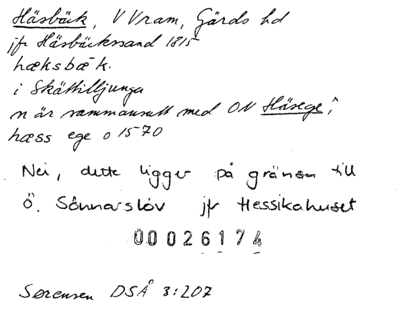 Häsbäck, V Vram, Gärds hd
jfr Häsbäcksrand 1815
hæksbæk.
i Skättilljunga
n är sammansatt med ON Häsege,
hæss ege o 1570
Nei, dette ligger på gränsen till
Ö. Sönnarslöv jfr Hessikahuset
00026174
Sørensen DSÅ 3:207